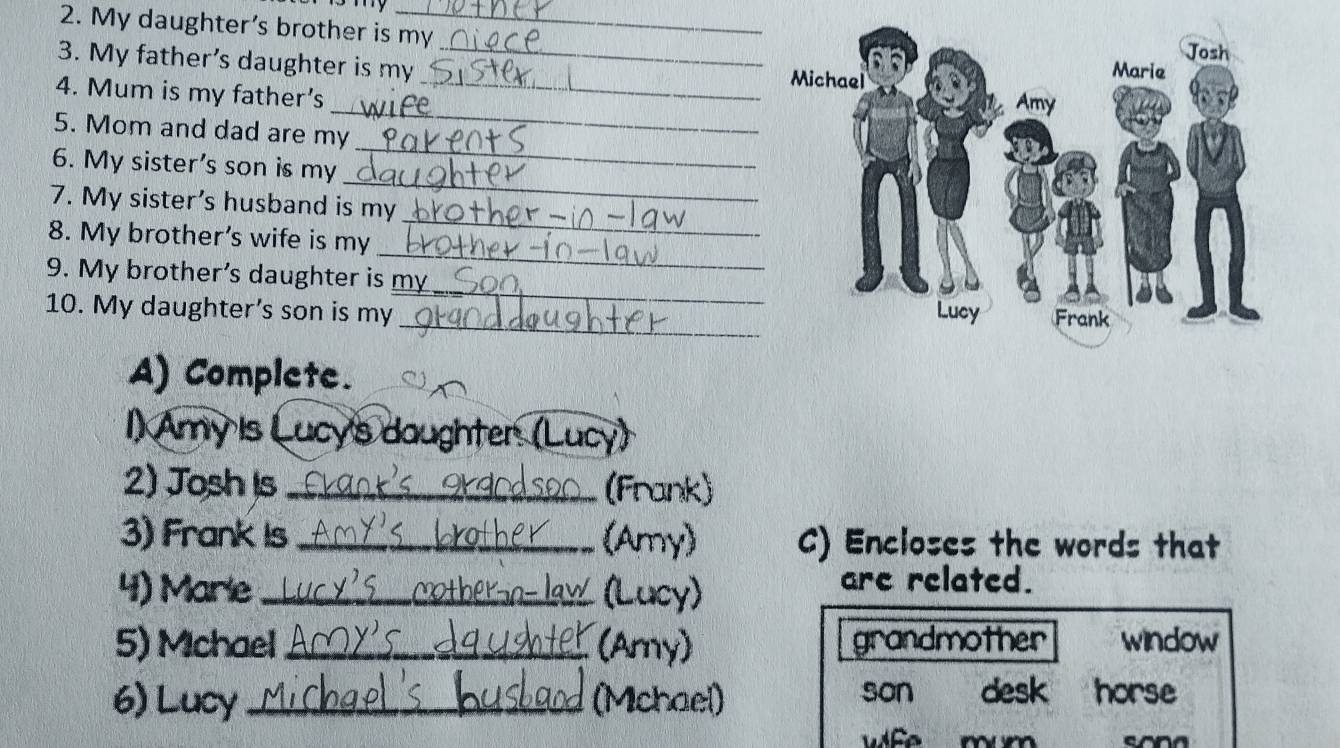 mother
2. My daughter's brother is my niece
3. My father's daughter is my sister
4. Mum is my father's wife
5. Mom and dad are my parents
6. My sister's son is my daughter
7. My sister's husband is my brother-in-law
8. My brother's wife is my brother-in-law
9. My brother's daughter is my Son
10. My daughter's son is my granddaughter
Michael
Amy
Marie
Josh
Lucy
Frank
A) Complete.
1) Amy is Lucy's daughter. (Lucy)
2) Josh is Frank's grandson (Frank)
3) Frank is Amy's brother (Amy)
4) Marie Lucy's mother-in-law (Lucy)
5) Michael Amy's daughter (Amy)
6) Lucy Michael's husband (Michael)
C) Encloses the words that
are related.
grandmother window
son desk horse
wife mum